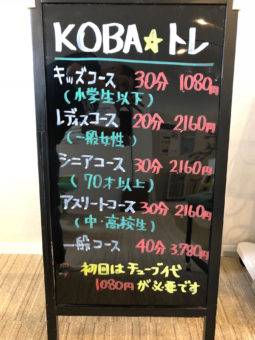 KOBA☆トレ
キッズコース 30分 1080円
(小学生以下)
レディスコース 20分 2160円
(一般女性)
シニアコース 30分 2160円
(70才以上)
アスリートコース 30分 2160円
(中・高校生)
一般コース 40分 3780円
初回はチューブ代
1080円が必要です